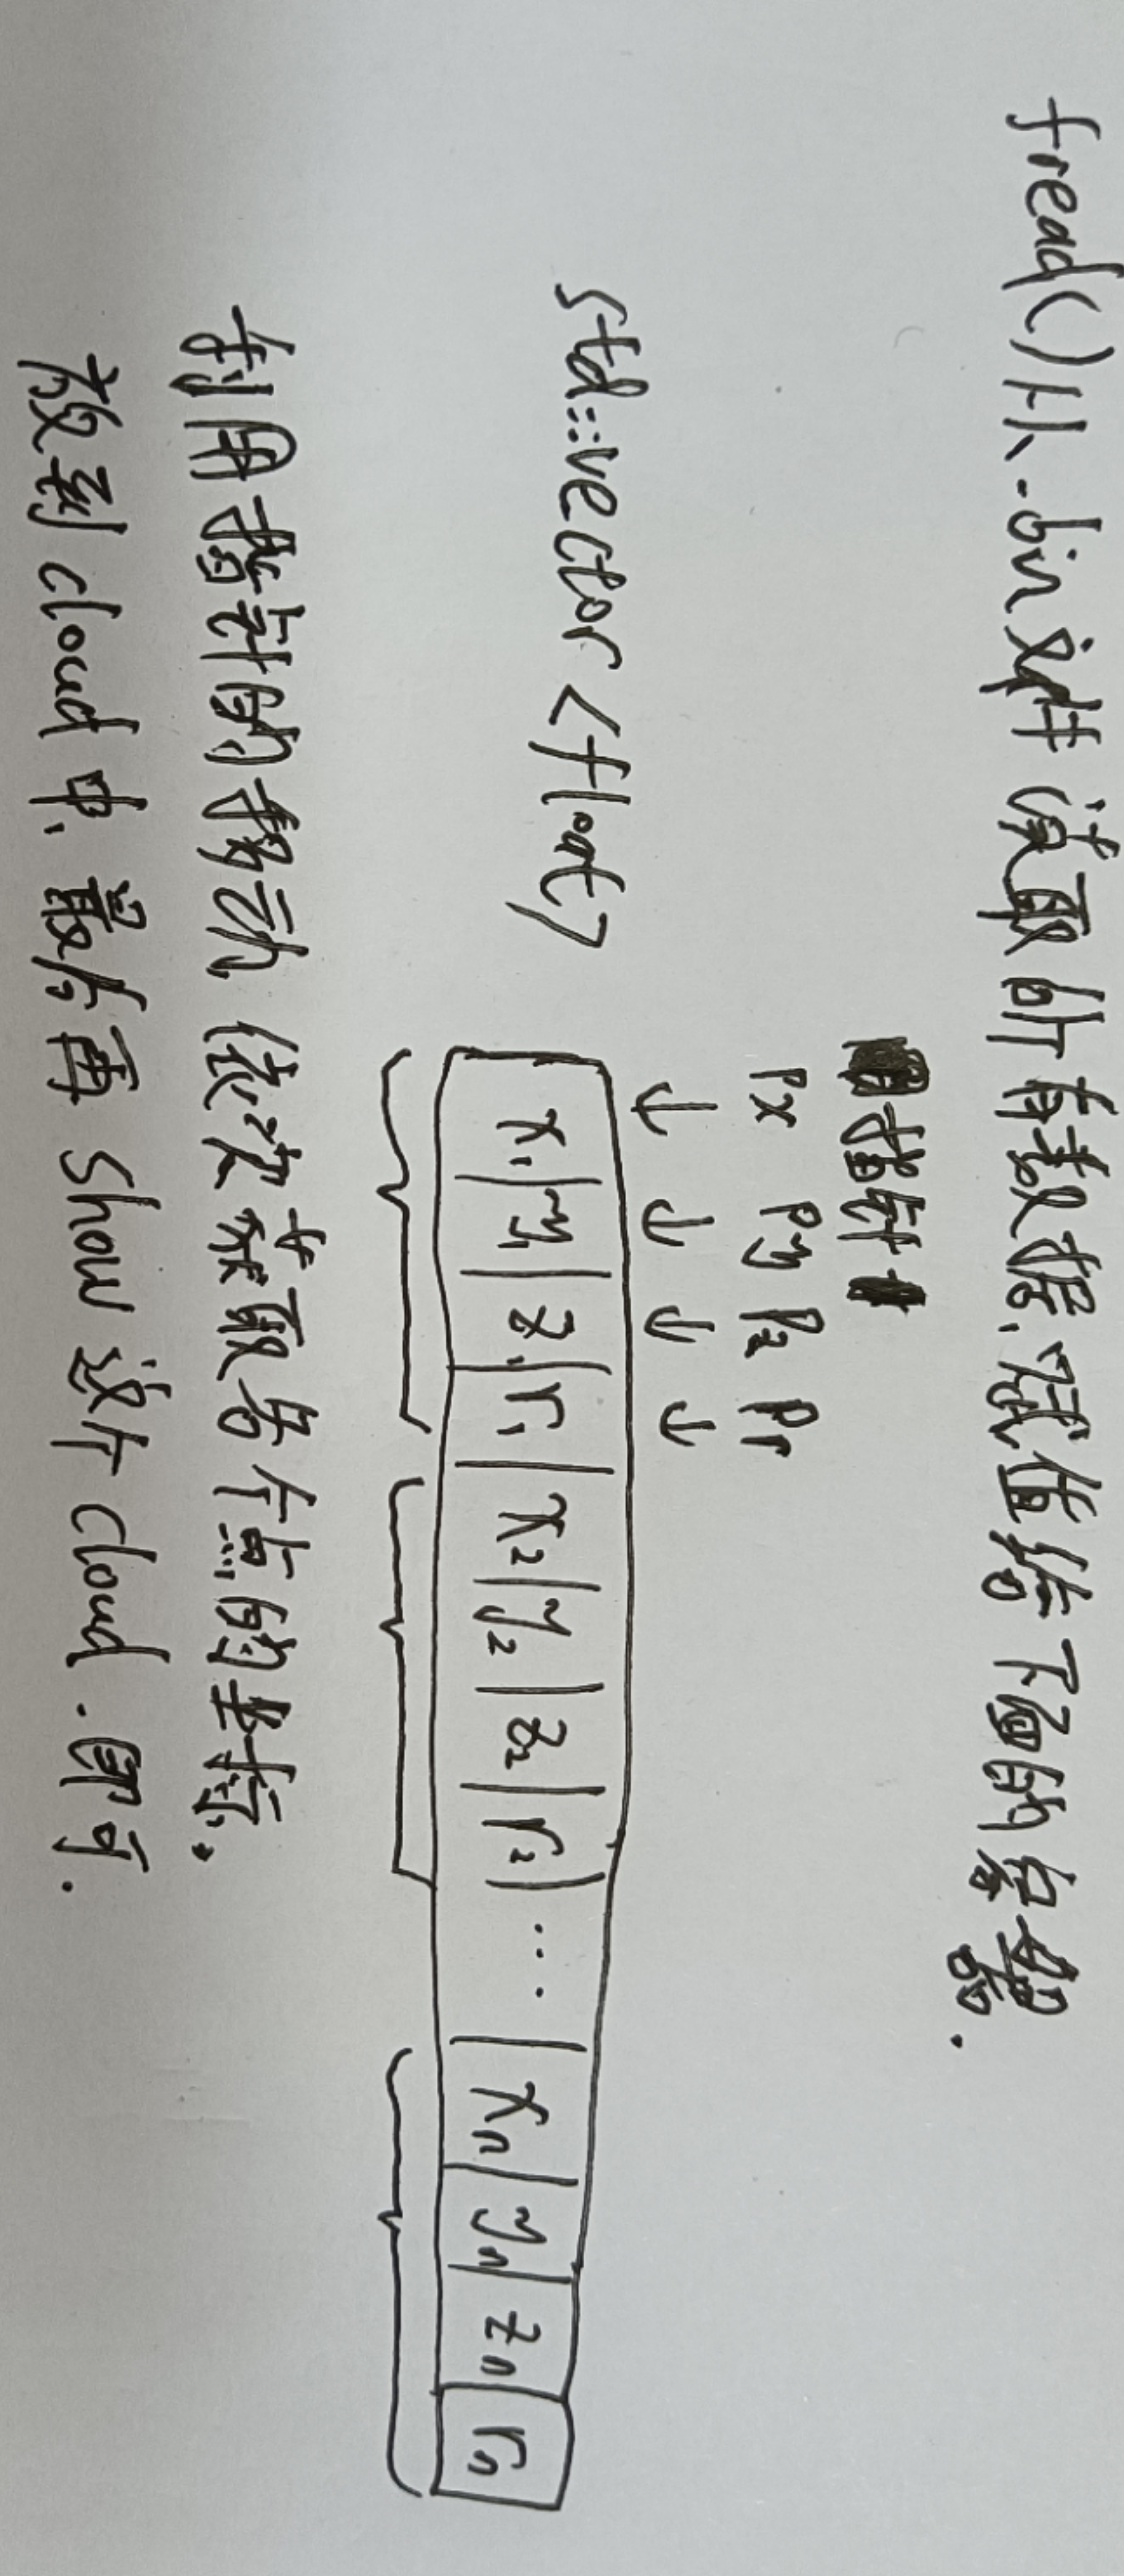 fread()从.bin文件读取所有数据,赋值给下面的容器.
指针
px py pz pr
↓ ↓ ↓ ↓
std::vector<float> x₁|y₁|z₁|r₁|x₂|y₂|z₂|r₂|...|xₙ|yₙ|zₙ|rₙ
利用指针的移动,依次获取各个点的坐标.
放到cloud中,最后再show这个cloud.即可.